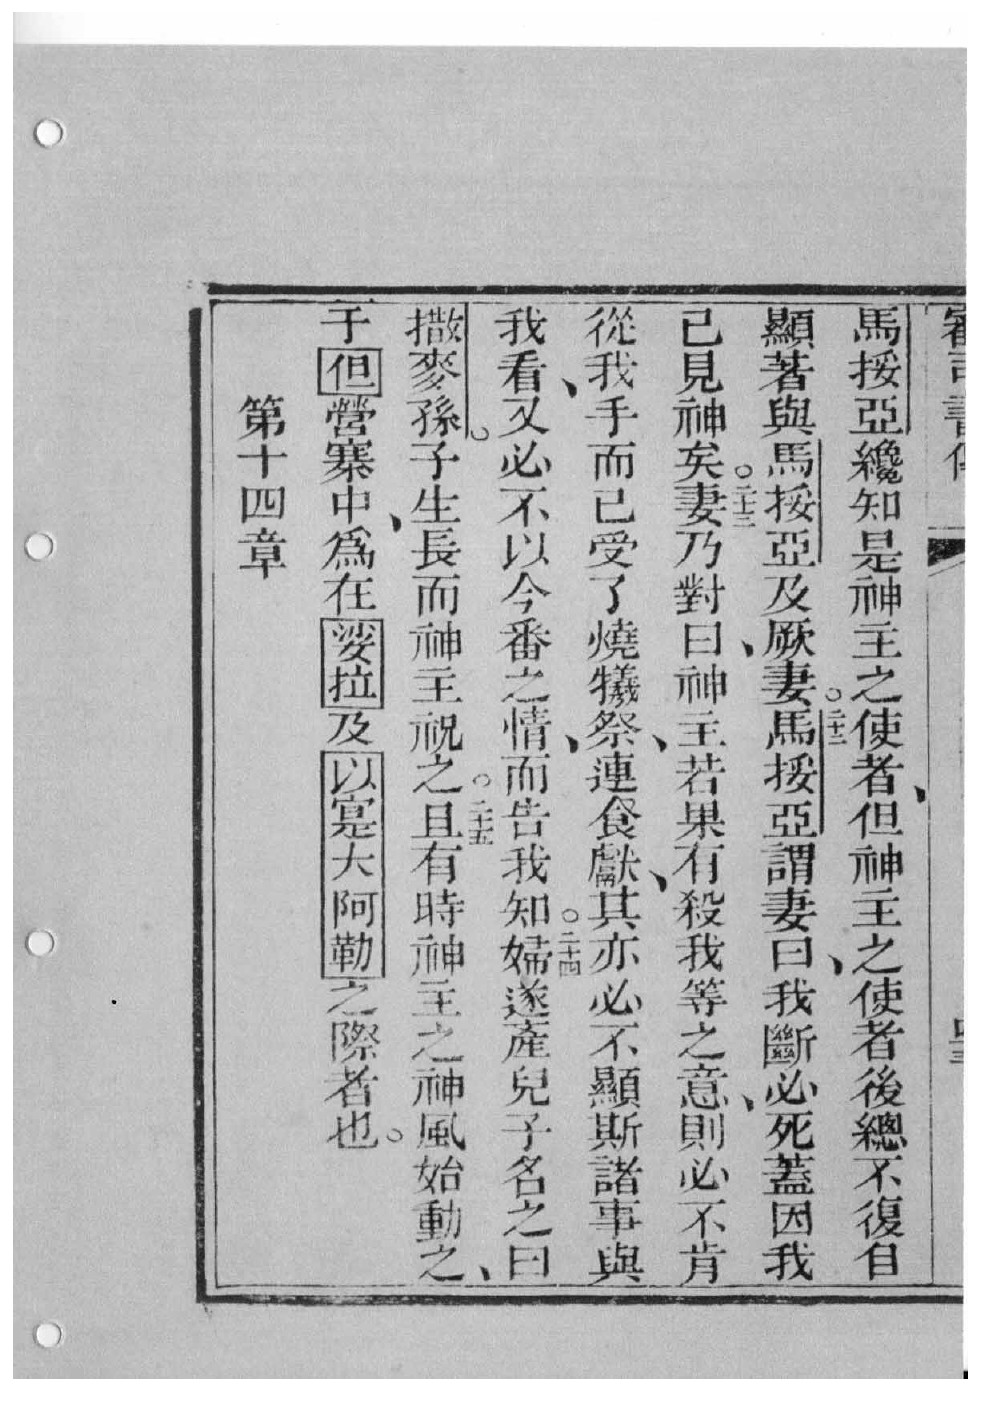 審司書傳
馬挼亞纔知是神主之使者、但神主之使者後總不復自
顯著與馬挼亞及厥妻。二十二馬挼亞謂妻曰、我斷必死蓋因我
已見神矣。二十三妻乃對曰、神主若果有殺我等之意、則必不肯
從我手而已受了燒犧祭、連食獻、其亦必不顯斯諸事與
我看、又必不以今番之情、而告我知。二十四婦遂產兒子名之曰
撒麥孫。子生長而神主祝之。二十五且有時神主之神風始動之、
于但營寨中、為在娑拉及以寔大阿勒之際者也。
第十四章